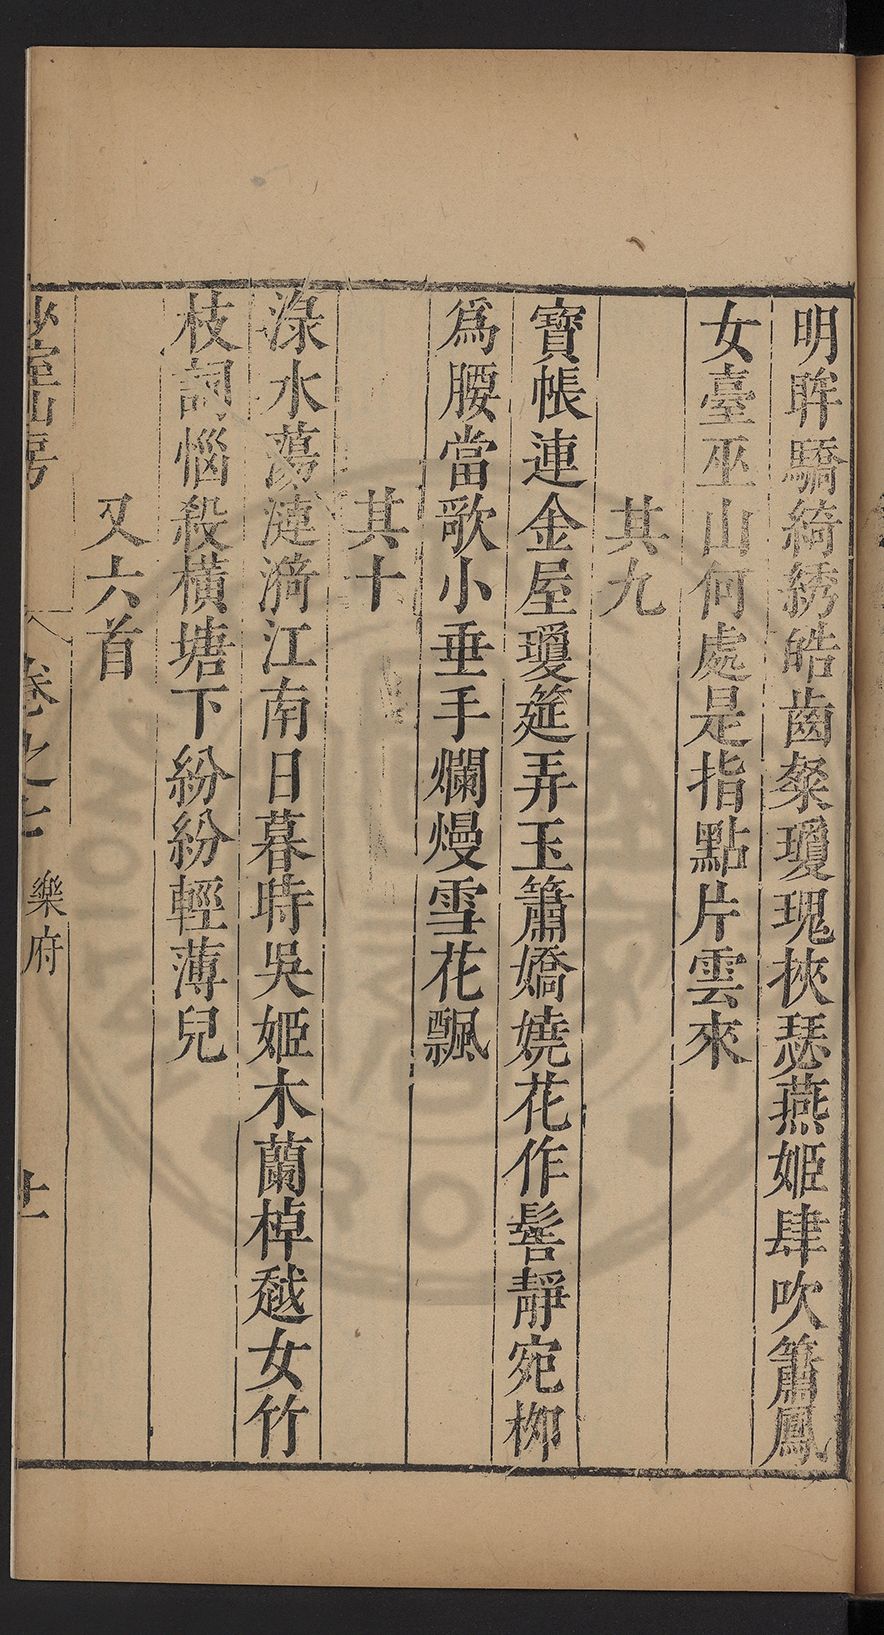 明眸驕綺綉皓齒粲瓊瑰挾瑟燕姬肆吹簫鳳
女臺巫山何處是指點片雲來
其九
寶帳連金屋瓊筵弄玉簫嬌嬈花作髻靜宛柳
爲腰當歌小垂手爛熳雪花飄
其十
淥水蕩漣漪江南日暮時吳姬木蘭棹越女竹
枝詞惱殺橫塘下紛紛輕薄兒
又六首
山房
卷之七 樂府
廿一